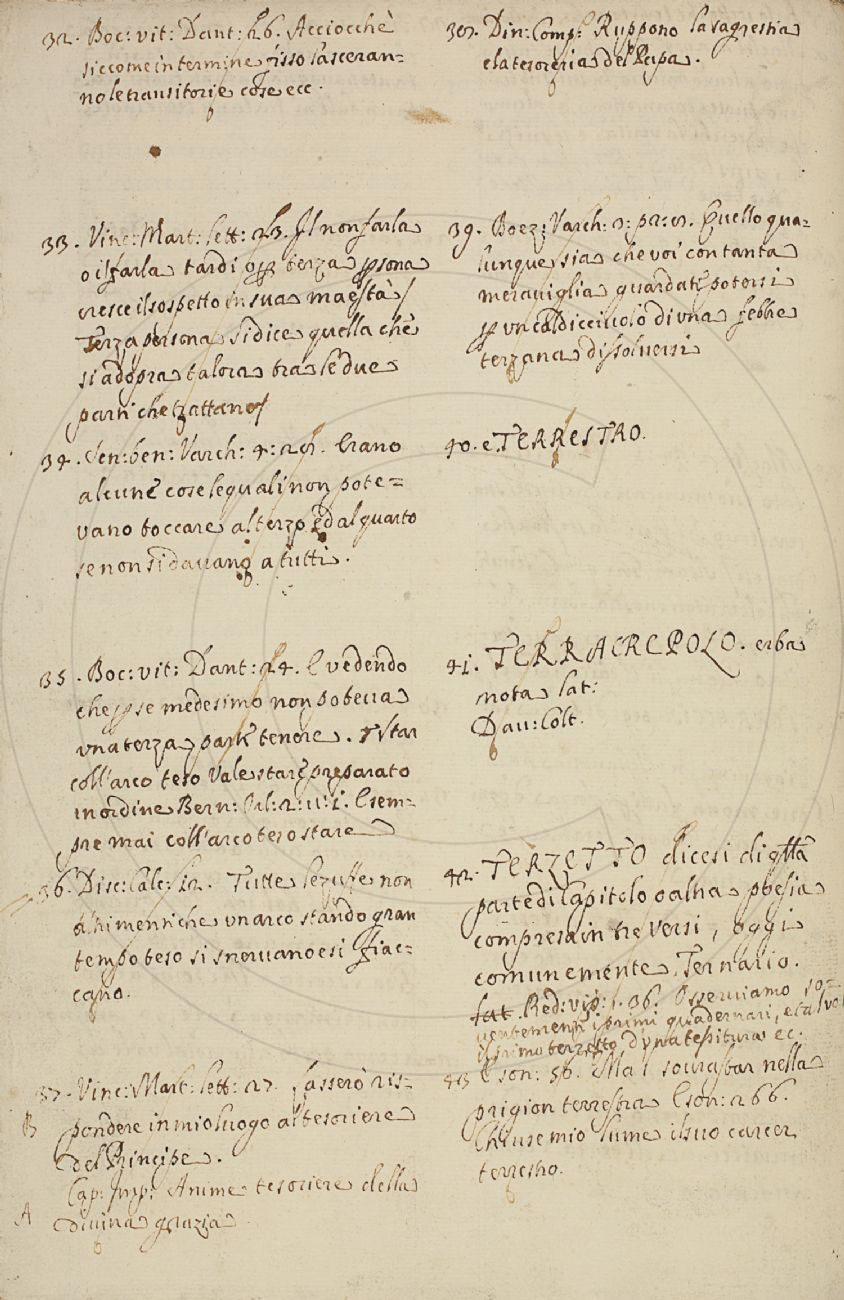 32. Boc: vit: Dant: 26. Acciocchè
siccome in termine fisso lasceran=
no le transitorie cose ecc.
33. Vinc: Mart: lett: 23. Il non farla
o il farla tardi o p terza psona
cresce il sospetto in sua maestà/
Terza persona si dice quella chè
si adopra talora tra le due
parti che trattano/
34. Sen: ben: Varch: 4: 28. Erano
alcune cose le quali non pote=
vano toccare al terzo, e dal quarto
se non si davano a tutti.
35. Boc: vit: Dant: 24. E vedendo
che p se medesimo non poteva
una terza parte tenere. Star
coll'arco teso Vale stare preparato
in ordine Bern: Orl: 2: 11: 1. E sem=
pre mai coll'arco teso stare
36. Disc: Calc: 12. Tutte le zuffe non
altrimenti che un arco stando gran
tempo teso si snervano e si fiac=
cano.
37. Vinc: Mart: lett: 27. Fassero ris=
B pondere in mio luogo al tesoriere
del Principe.
Cap: Imp: Anime tesoriere della
A divina grazia
Din: Comp: Ruppono la sagrestia
e la tesoreria del Papa.
39. Boez: Varch: Quello qua=
lunque sia che voi con tanta
meraviglia guardate potersi
p un caldicciuolo di una febbre
terzana dissolversi
40. e. TERRESTRO.
41. TERRACREPOLO. erba
nota lat:
Dav: Colt.
42. TERZETTO dicesi di qlla
parte di Capitolo o altra poesia
compresa in tre versi, oggi
comunemente Ternario.
Red: vip: 1. 36. Osserviamo so=
i primi quadernari, e talvol
il primo terzetto d'una tessitura ec.
43 E son: 56. Mal sourastar nella
prigion terrestra E son: 266.
Chiuse mio lume il suo carcer
terrestro.